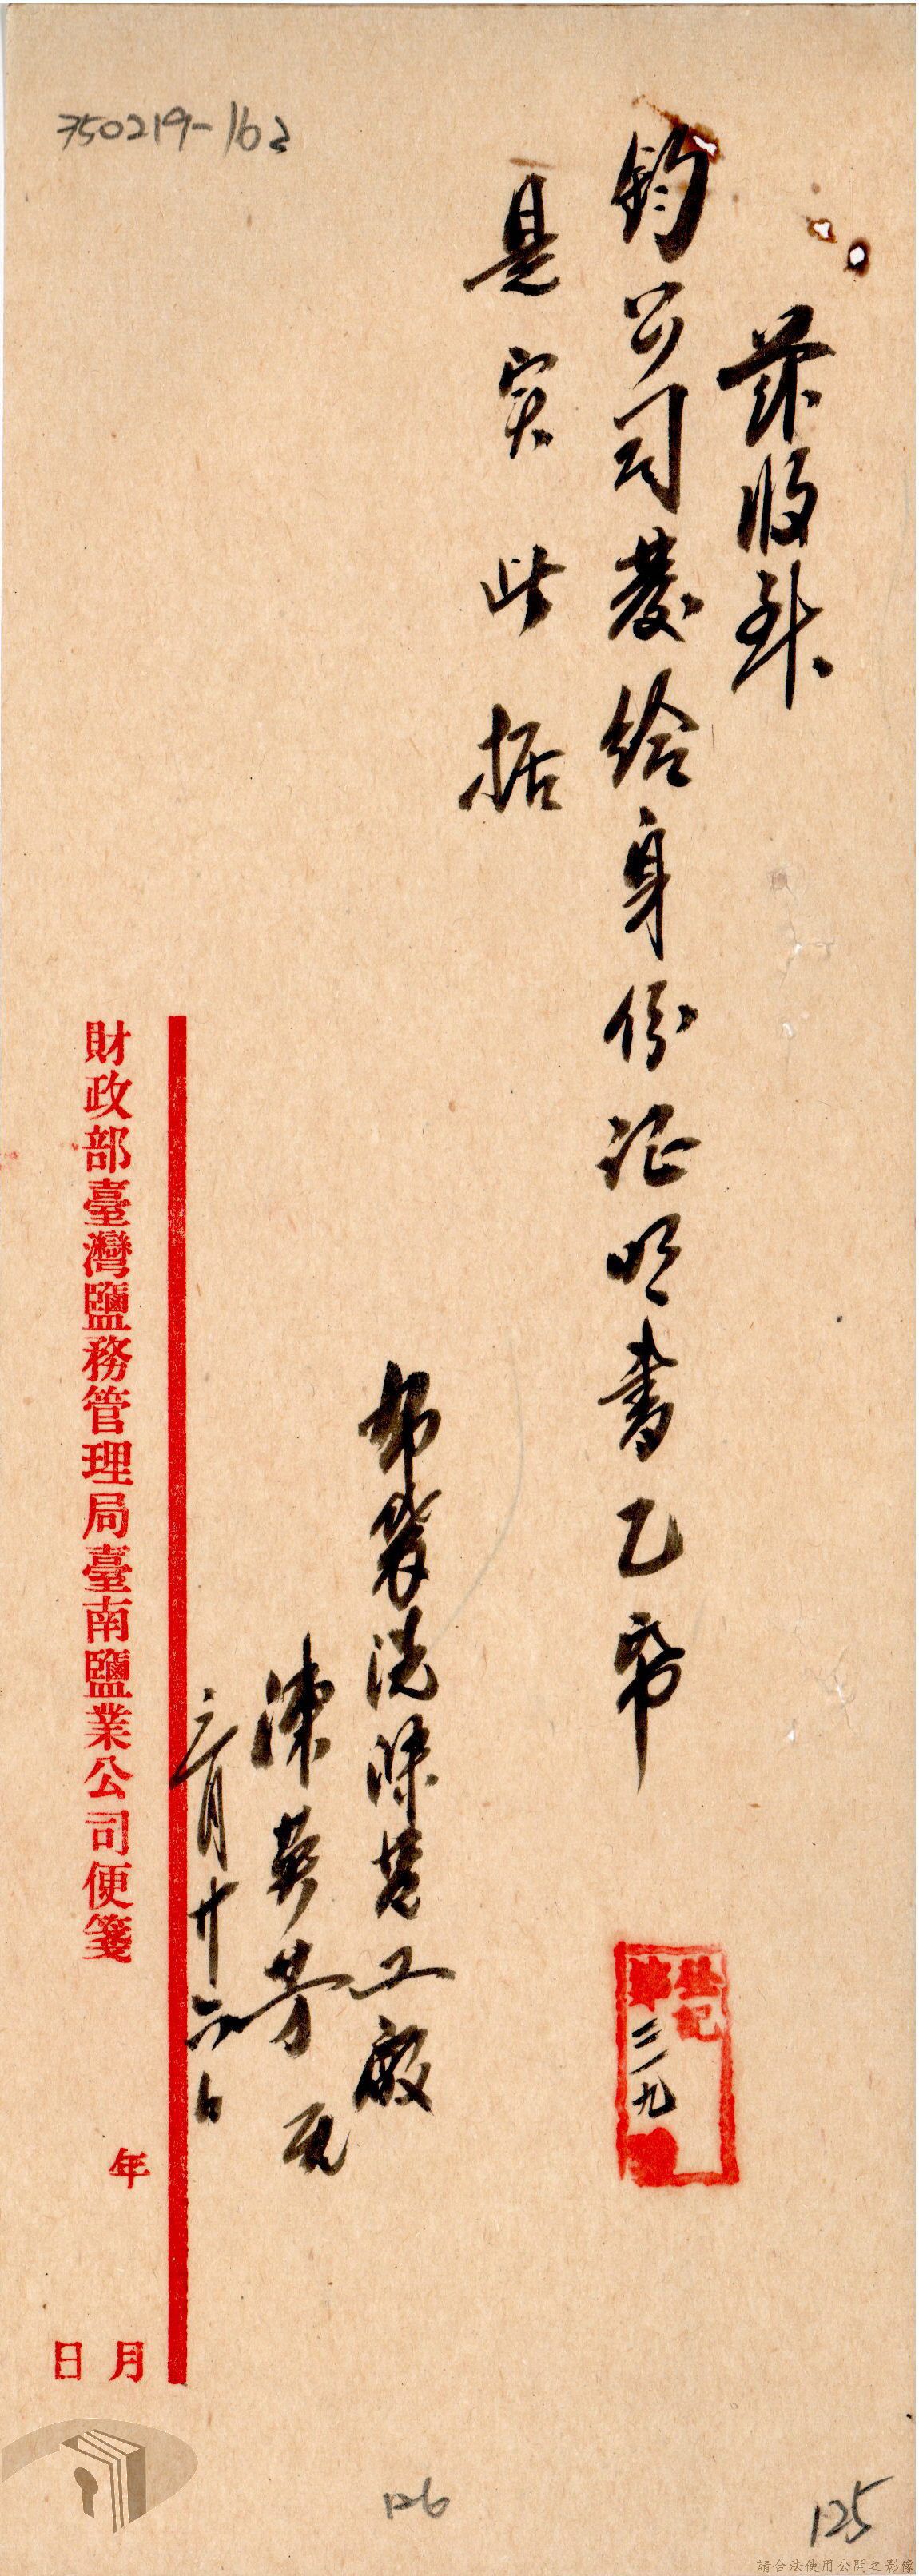 茲收到
鈞公司發給身份证明書乙帋
是实此据
布袋洗滌𫝆工廠
陳英芳
三月廿六日
登記
第三一九號
財政部臺灣鹽務管理局臺南鹽業公司便箋
年
月
日
350219-163
126
125
請合法使用公開之影像